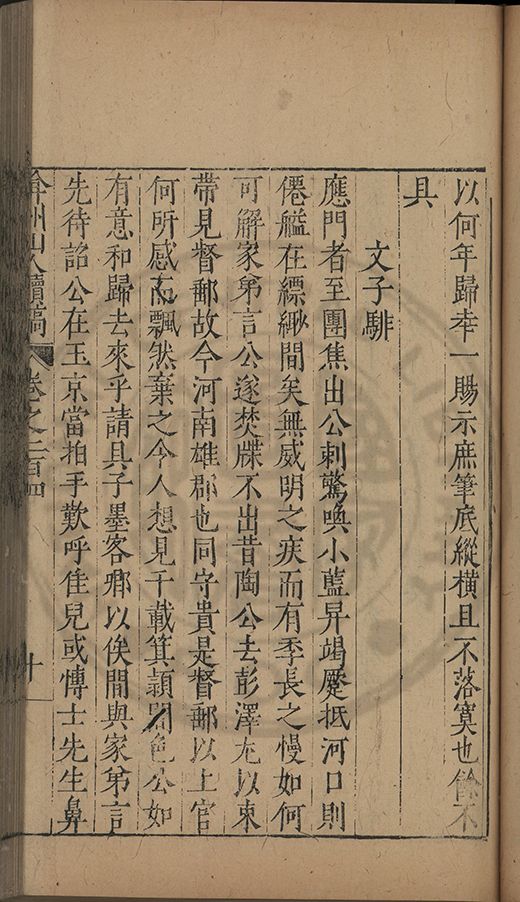 以何年歸幸一賜示庶筆底縱橫且不落寞也餘不
具
文子騑
應門者至團焦出公刺驚喚小藍舁竭蹷抵河口則
僊艗在縹緲間矣無威明之疾而有季長之慢如何
可解家弟言公遂焚牒不出昔陶公去彭澤尤以束
帶見督郵故今河南雄郡也同守貴是督郵以上官
何所感而飄然棄之令人想見千載箕潁間色公如
有意和歸去來乎請具子墨客卿以俟間與家弟言
先待詔公在玉京當拍手歎呼隹兒或愽士先生鼻
弇州山人續稿
卷之二百四
十